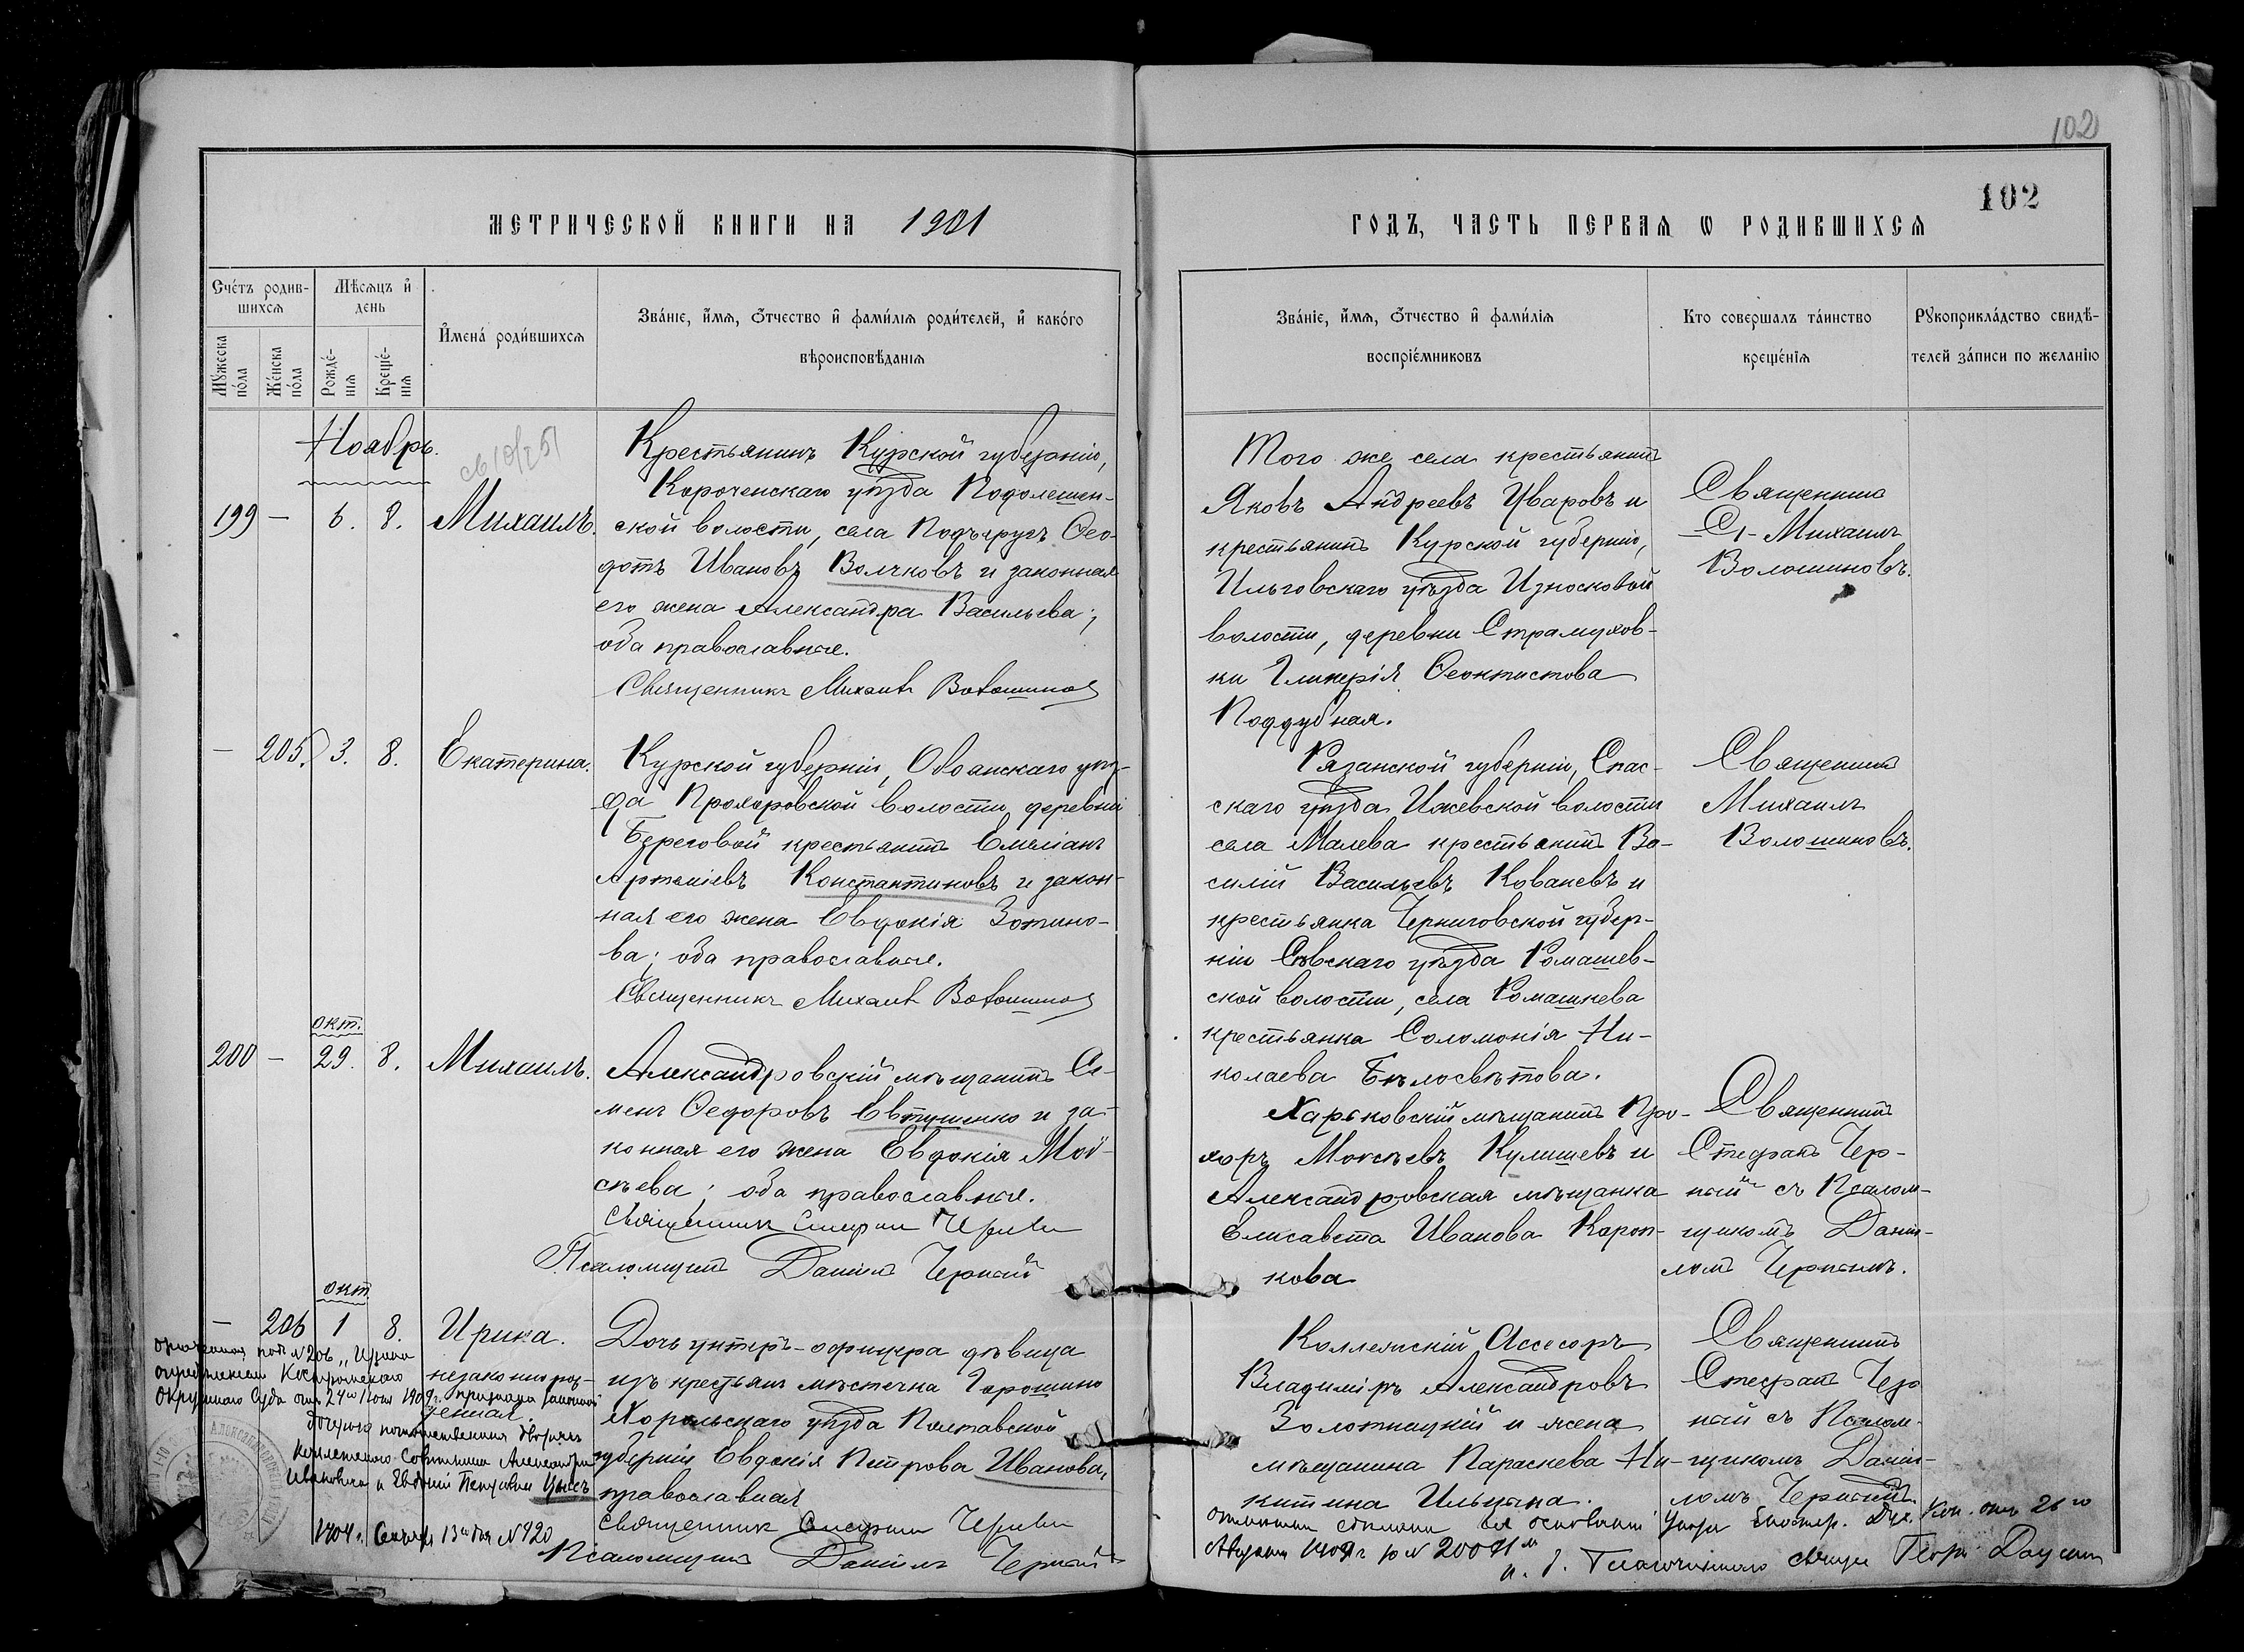 102
102
МЕТРИЧЕСКОЙ КНИГИ НА 1901
ГОДЪ, ЧАСТЬ ПЕРВАѦ Ѡ РОДИВШИХСѦ
Счéтъ родив-
шихсѧ
Мѣсѧцъ и҆
день
Мꙋ́жеска
по́ла
Же́нска
по́ла
Рожде́-
нїѧ
Креще́-
нїѧ
И҆мена́ роди́вшихсѧ
Зва́нїе, и҆́мѧ, ѻ҆́тчество и҆ фами́лїѧ роди́телей, и҆ како́го
вѣроисповѣ́данїѧ
Зва́нїе, и҆́мѧ, ѻ҆́тчество и҆ фами́лїѧ
воспрїе́мниковъ
Кто соверша́лъ та́инство
креще́нїѧ
Рꙋкоприкла́дство свидѣ́-
телей за́писи по жела́нїю
Ноябрь.
199 — 6. 8. Михаилъ.
Крестьянинъ Курской губерніи,
Короченскаго уѣзда Подолешен-
ской волости, села Подъяругъ Ѳео-
дотъ Ивановъ Волчковъ и законная
его жена Александра Васильева;
оба православные.
Священникъ Михаилъ Волошиновъ
Того же села крестьянинъ
Яковъ Андреевъ Уваровъ и
крестьянинъ Курской губерніи,
Льговскаго уѣзда Износковой
волости, деревни Страмухов-
ки Гликерія Ѳеоктистова
Поддубная.
Священникъ
Михаилъ
Волошиновъ.
— 205. 3. 8. Екатерина.
Курской губерніи, Обоянскаго уѣз-
да Прохоровской волости, деревни
Береговой крестьянинъ Емеліанъ
Артеміевъ Константиновъ и закон-
ная его жена Евдокія Зотико-
ва; оба православные.
Священникъ Михаилъ Волошиновъ
Рязанской губерніи, Спас-
скаго уѣзда Ижевской волости
села Малева крестьянинъ Ва-
силій Васильевъ Ковалевъ и
крестьянка Черниговской губер-
ніи Сѣвскаго уѣзда Ромашев-
ской волости, села Ромашкева
крестьянка Соломонія Ни-
колаева Бѣлосвѣтова.
Священникъ
Михаилъ
Волошиновъ.
окт.
200 — 29. 8. Михаилъ.
Александровскій мѣщанинъ Се-
менъ Ѳедоровъ Евтушенко и за-
конная его жена Евдокія Мои-
сѣева; оба православные.
Священникъ Стефанъ Черный
Псаломщикъ Даніилъ Черный
Харьковскій мѣщанинъ Про-
хоръ Моисѣевъ Кулишевъ и
Александровская мѣщанка
Елисавета Иванова Кароп-
кова
Священникъ
Стефанъ Чер-
ный съ Псалом-
щикомъ Даніи-
ломъ Чернымъ.
окт.
— 206 1 8. Ирина.
незаконнорож-
денная.
Дочь унтеръ-офицера дѣвица
изъ крестьянъ мѣстечка Горошино
Хорольскаго уѣзда Полтавской
губерніи Евдокія Петрова Иванова,
православная
Священникъ Стефанъ Черный
Псаломщикъ Даніилъ Черный
Коллежскій Ассесоръ
Владиміръ Александровъ
Золотницкій и жена
мѣщанина Параскева Ни-
китина Ильина.
Священникъ
Стефанъ Чер
ный съ Псалом-
щикомъ Даніи-
ломъ Чернымъ.
подъ №206 „Ирина
опредѣленіемъ Костромскаго
Окружнаго Суда отъ 24го Іюня 1909г. признана законной
дочерью потомственныхъ дворянъ
Коллежскаго Совѣтника Александра
Ивановича и Евдокіи Петровны
1909г. Сентября 13го дня №920
отмѣтка сдѣлана на основаніи Указа Екатер. Дух. Кон. отъ 26го
Августа 1909г за № 20071мъ
и. д.